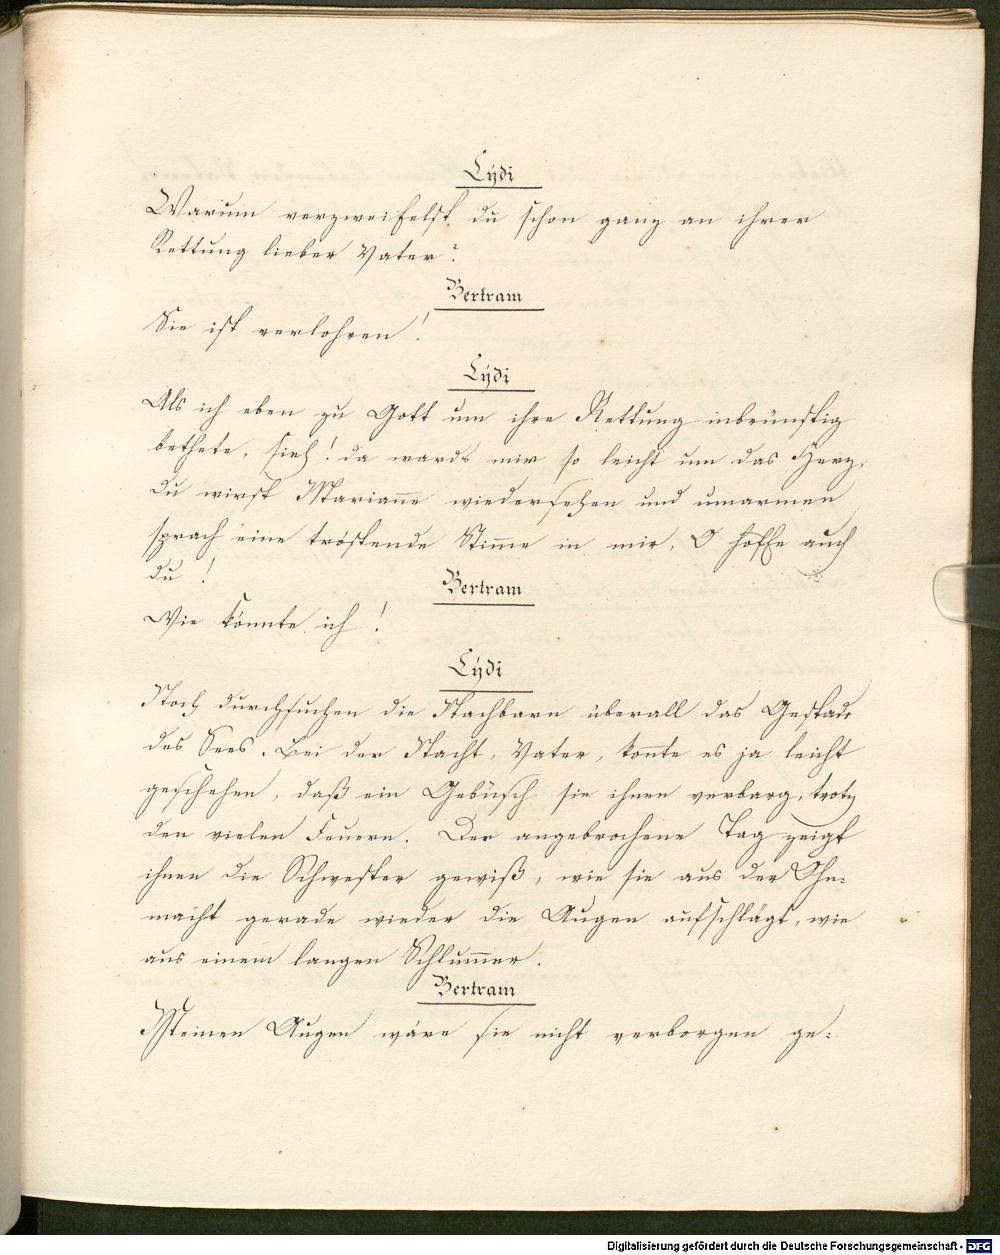 Lydi
Warum verzweifelst du schon ganz an ihrer
Rettung lieber Vater?
Bertram
Sie ist verlohren!
Lydi
Als ich eben zu Gott um ihre Rettung inbrünstig
bethete, sieh! da wards mir so leicht um das Herz,
du wirst Marian̅e wiedersehen und umarmen
sprach eine tröstende Stim̅e in mir. O hoffe auch
du!
Bertram
Wie könnte ich!
Lydi
Noch durchsuchen die Nachbarn überall das Gestade
des Sees. Bei der Nacht, Vater, kon̅te es ja leicht
geschehen, daß ein Gebüsch sie ihnen verbarg, trotz
den vielen Feuern. Der angebrochene Tag zeigt
ihnen die Schwester gewiß, wie sie aus der Ohn-
macht gerade wieder die Augen aufschlägt, wie
aus einem langen Schlum̅er.
Bertram
Meinen Augen wäre sie nicht verborgen ge-
Digitalisierung gefördert durch die Deutsche Forschungsgemeinschaft - DFG